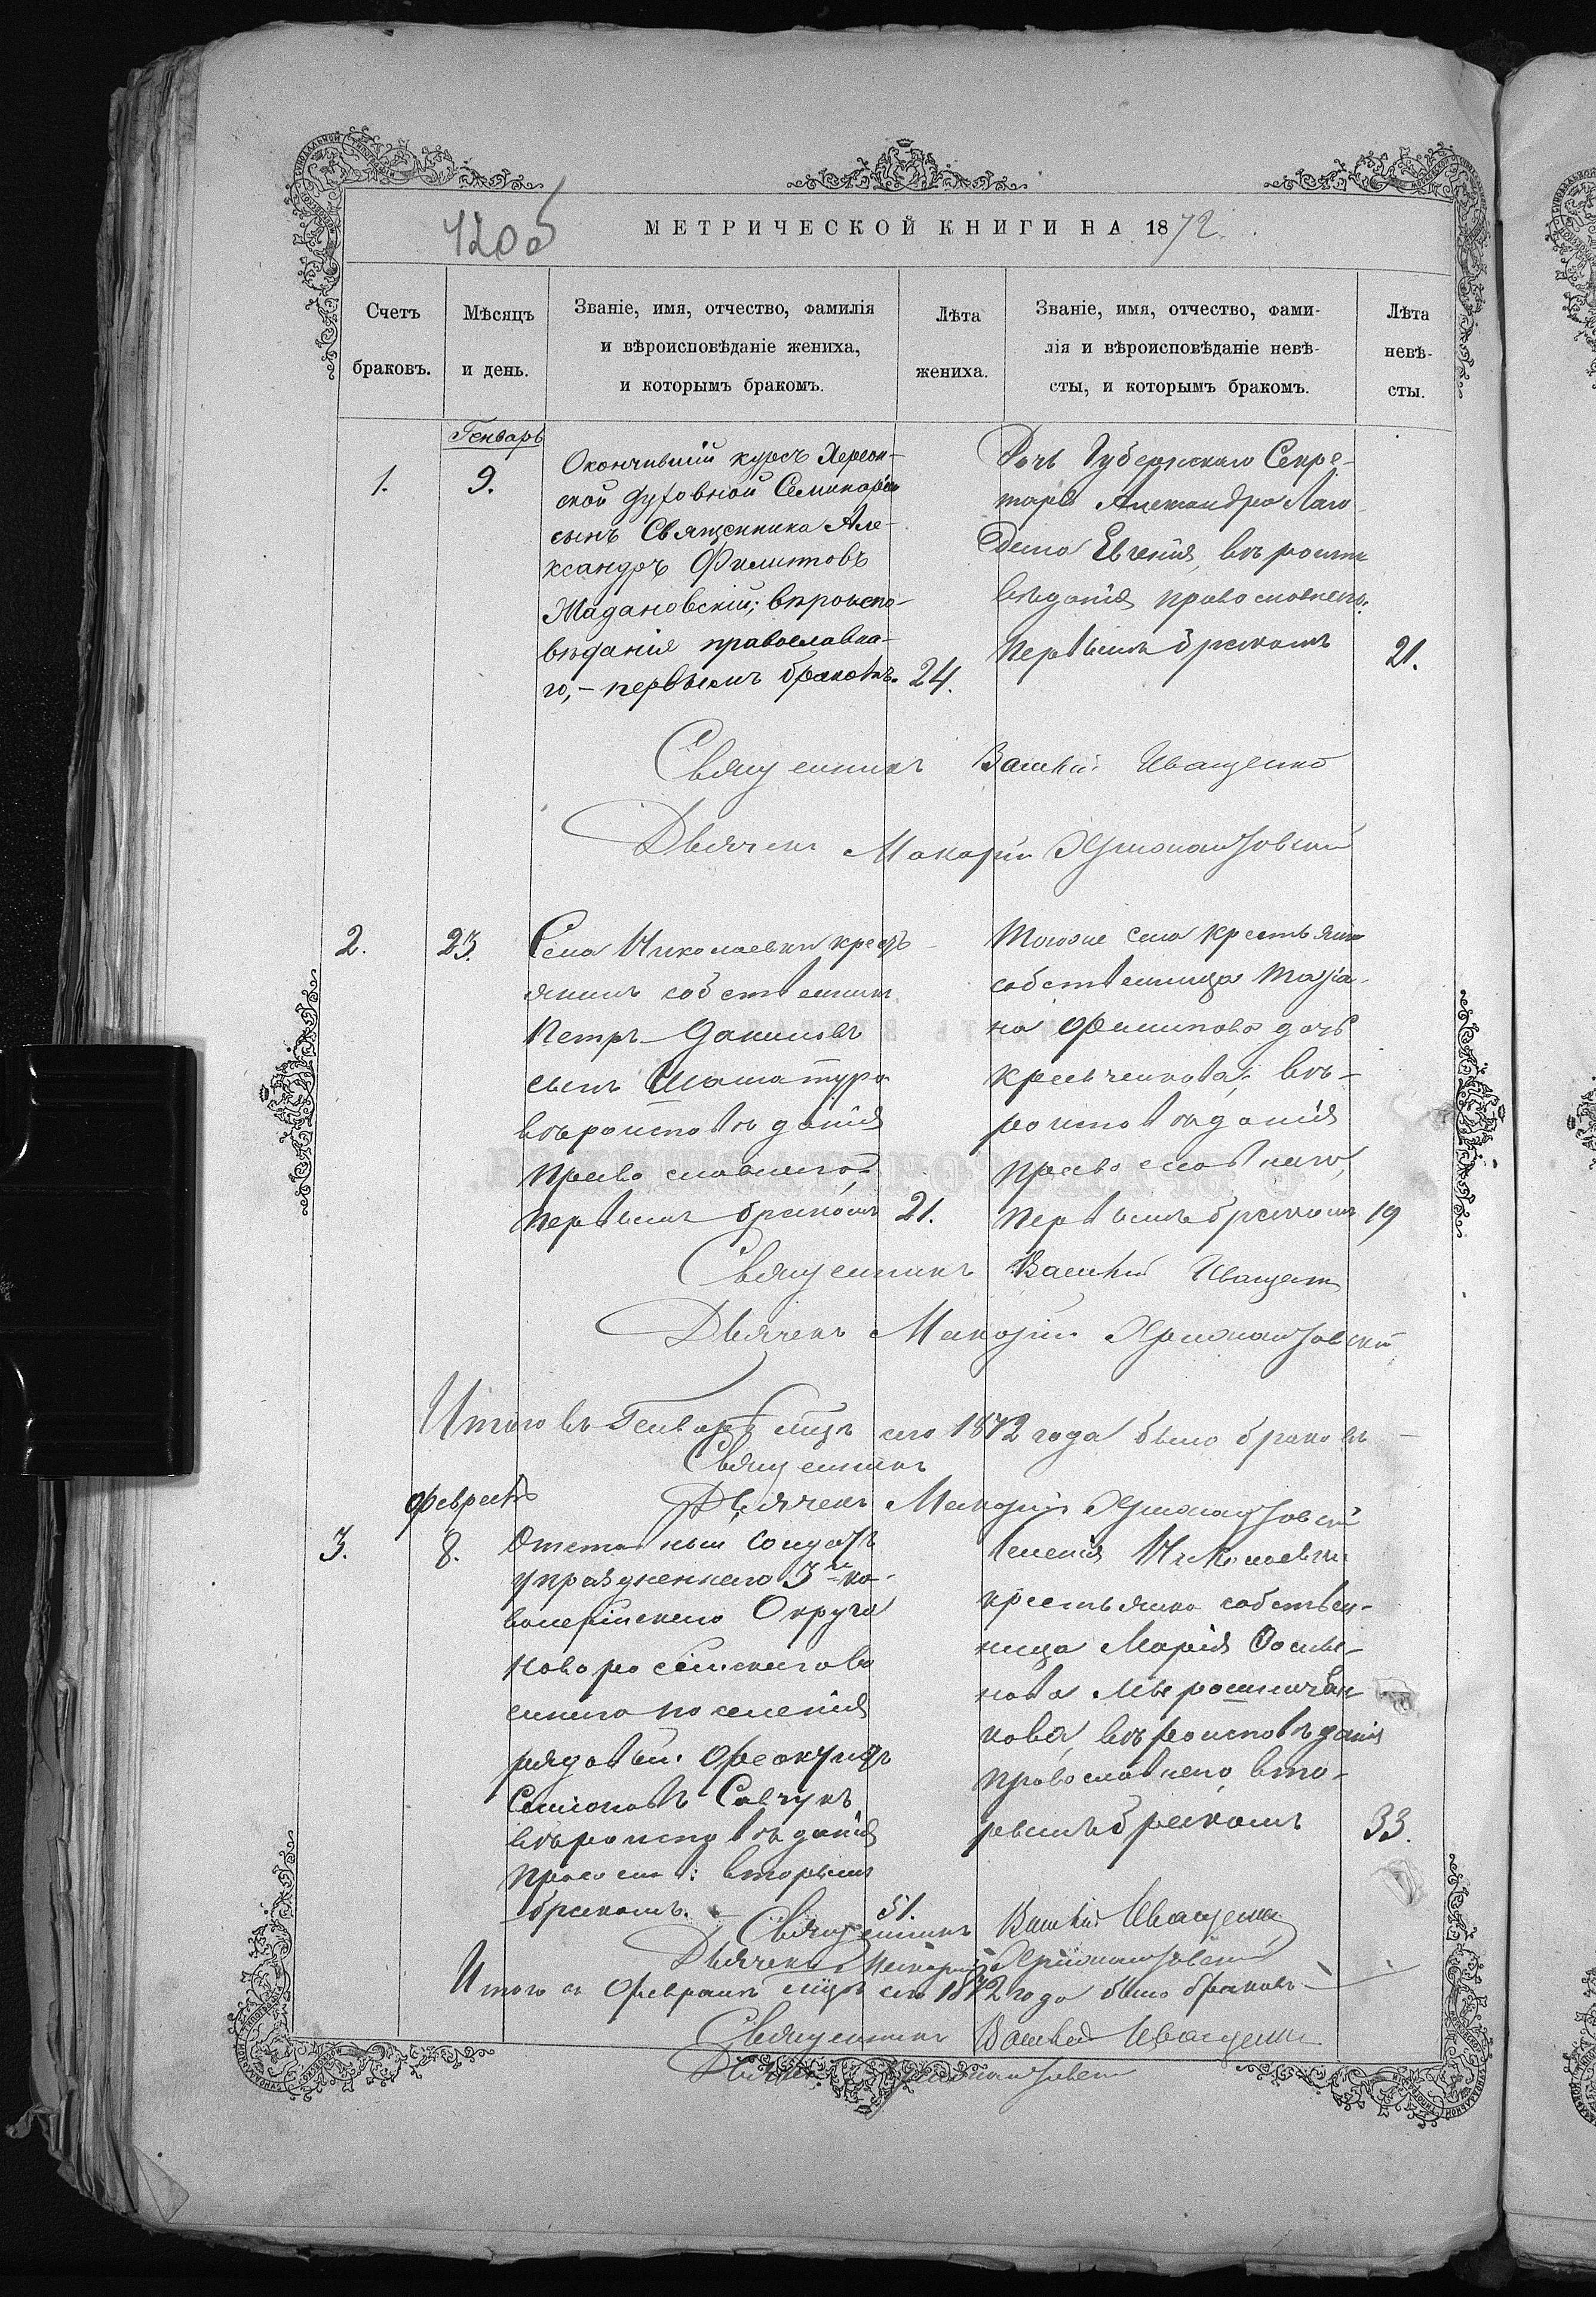 120об
МЕТРИЧЕСКОЙ КНИГИ НА 1872.
Счетъ браковъ.
Мѣсяцъ и день.
Званіе, имя, отчество, фамилія
и вѣроисповѣданіе жениха,
и которымъ бракомъ.
Лѣта жениха.
Званіе, имя, отчество, фами-
лія и вѣроисповѣданіе невѣ-
сты, и которымъ бракомъ.
Лѣта невѣ-
сты.
Генварь
1.
9.
Окончившій курсъ Херсон-
ской Духовной Семинаріи
сынъ Священника Але-
ксандръ Филиповъ
Жадановскій; вѣроиспо-
вѣданія православна-
го,- первымъ бракомъ.
24.
Дочь Губернскаго Секре-
таря Александра
Евгенія, вѣроиспо
вѣданія православнаго.
Первымъ бракомъ
21.
Священникъ Василій Иващенко
Дьячекъ Макарій
2.
23.
Села Николаевки крестъ
янинъ собственникъ
Петръ Даниловъ
сынъ Шаматура
вѣроисповѣданія
православнаго,
первымъ бракомъ
21.
Тогоже села крестьянка
собственница Татіа-
на Филипова дочь
вѣ-
роисповѣданія
православнаго,
первымъ бракомъ
19
Священникъ Василій Иващенко
Дьячекъ Макарій
Итого въ Генварѣ мцѣ сего 1872 года было браковъ
Священникъ
Дьячекъ Макарій
Февраль
3.
8.
Отставный солдатъ
упраздненнаго 3го ка-
валерійскаго Округа
Новороссійскаго во
еннаго поселенія
рядовый
Семіоновъ Савчукъ
вѣроисповѣданія
правосл: вторымъ
бракомъ.
51.
Селенія Николаевки
крестьянка собствен-
ница Марія Осипо-
нова Мирошничен
кова, вѣроисповѣданія
православнаго, вто-
рымъ бракомъ
33.
Священникъ Василій Иващенко
Дьячекъ Макарій
Итого въ Февралѣ мцѣ сего 1872 года было браковъ
Священникъ Василій Иващенко
Дьячекъ